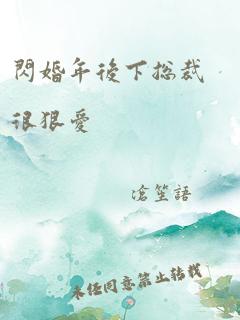 閃婚年後下总裁
很狠愛
滄笙語
未经同意禁止转载